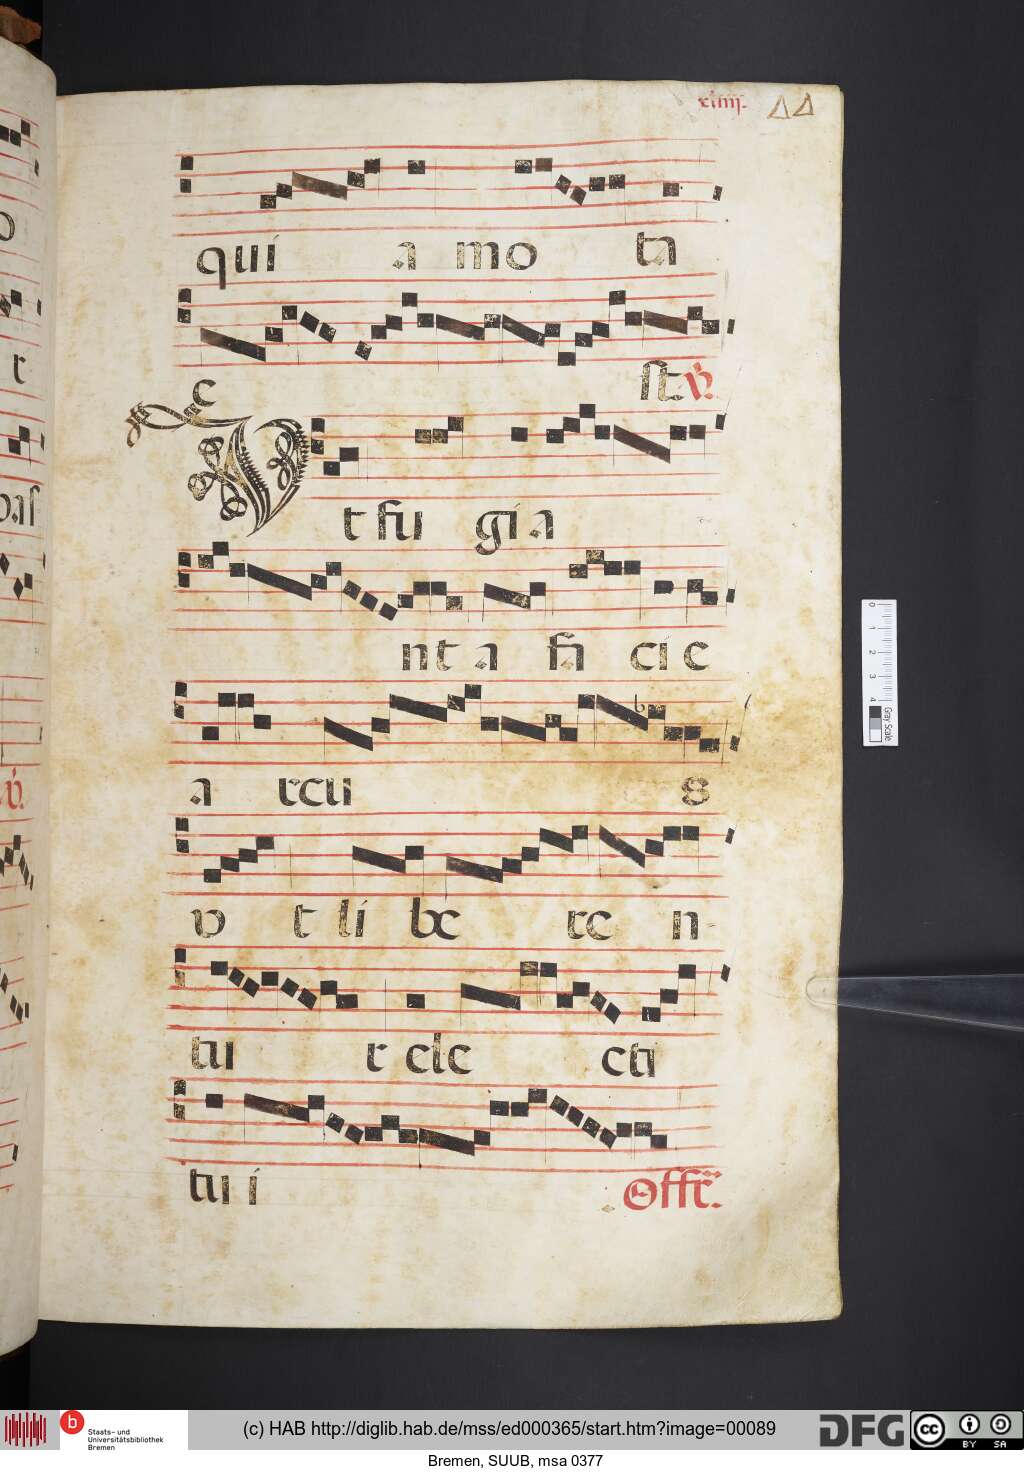 xliiij. 44
qui a mo ta
e st. ℣.
Ut fu gi a
nt a fa ci e
a rcu s
v t li be re n
tu r ele cti
tu i Offr̄.
0 1 2 3 4
Gray Scale
b Staats- und
Universitätsbibliothek
Bremen
(c) HAB http://diglib.hab.de/mss/ed000365/start.htm?image=00089
DFG
cc BY SA
Bremen, SUUB, msa 0377